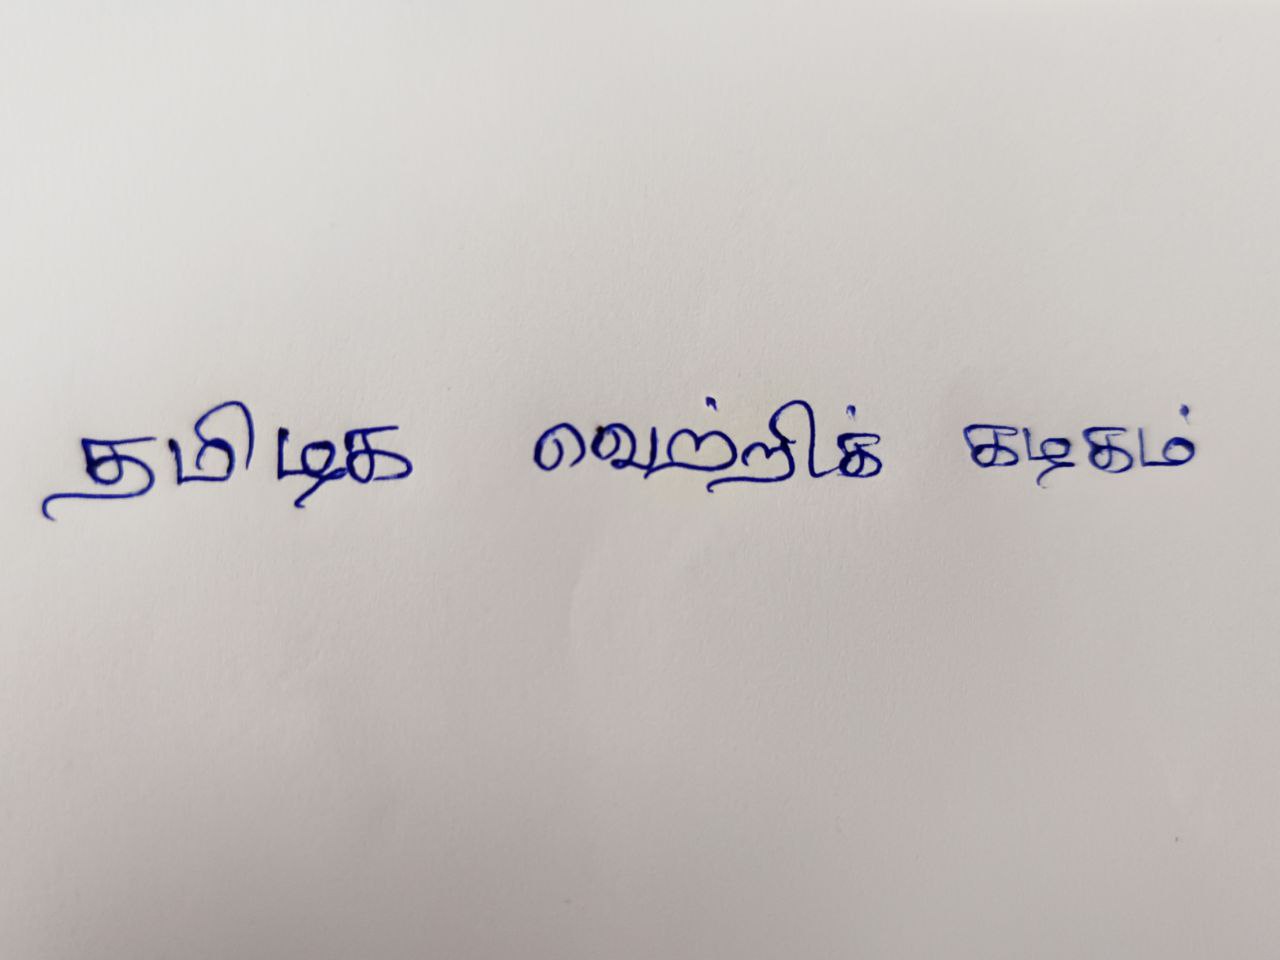 தமிழக வெற்றிக் கழகம்